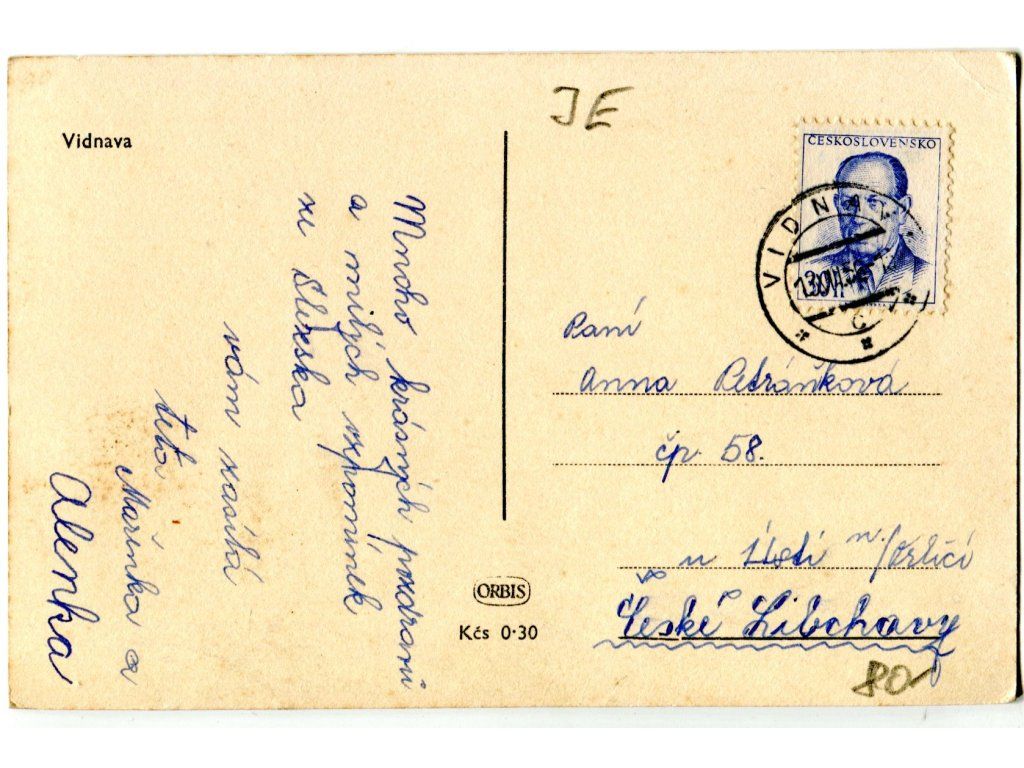 Vidnava
JE
ČESKOSLOVENSKO
VIDNAVA
C
Mnoho krásných pozdravů
a milých vzpomínek
ze Slezska
vám zasílá
teta
Mařinka a
Alenka
Paní
Anna Petráňková
čp. 58.
u Ústí n/Orlicí
České Libchavy
ORBIS
Kčs 0·30
80